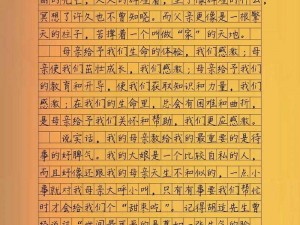 罢想了许久也不曾知晓。而父亲更像是一根擎
天的柱子，支撑着一个叫做“家”的天地。
母亲给予我们生命的体验，我们感激；母
亲使我们茁壮成长，我们感激；母亲给予我们
的教育和开导，使我们获取知识和力量，我们
感激；在我们的生命里，总会有困难和曲折，
是母亲给予我们关怀和帮助，我们更应感激。
说实话，我的母亲教给我的最重要的是待
事的好脾气。我的大眼是一个比较自私的人，
而且好像还跟我的母亲天生不和似的，一点小
事就对我母亲大呼小叫，只有有事要我们帮忙
时才会给我们个“甜果吃”。记得胡适先生曾